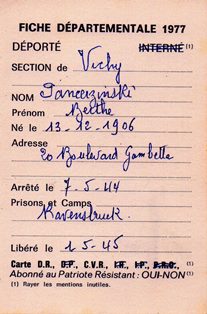 FICHE DÉPARTEMENTALE 1977
DÉPORTÉ INTERNÉ (1)
SECTION de Vichy
NOM Pancerzinski
Prénom Berthe
Né le 13-12-1906
Adresse
20 Boulevard Gambetta
Arrêté le 7-5-44
Prisons et Camps
Ravensbruck.
Libéré le 1-5-45
Carte D.R., D.P., C.V.R., I.R., I.P., P.R.O., (1)
Abonné au Patriote Résistant : OUI-NON (1)
(1) Rayer les mentions inutiles.